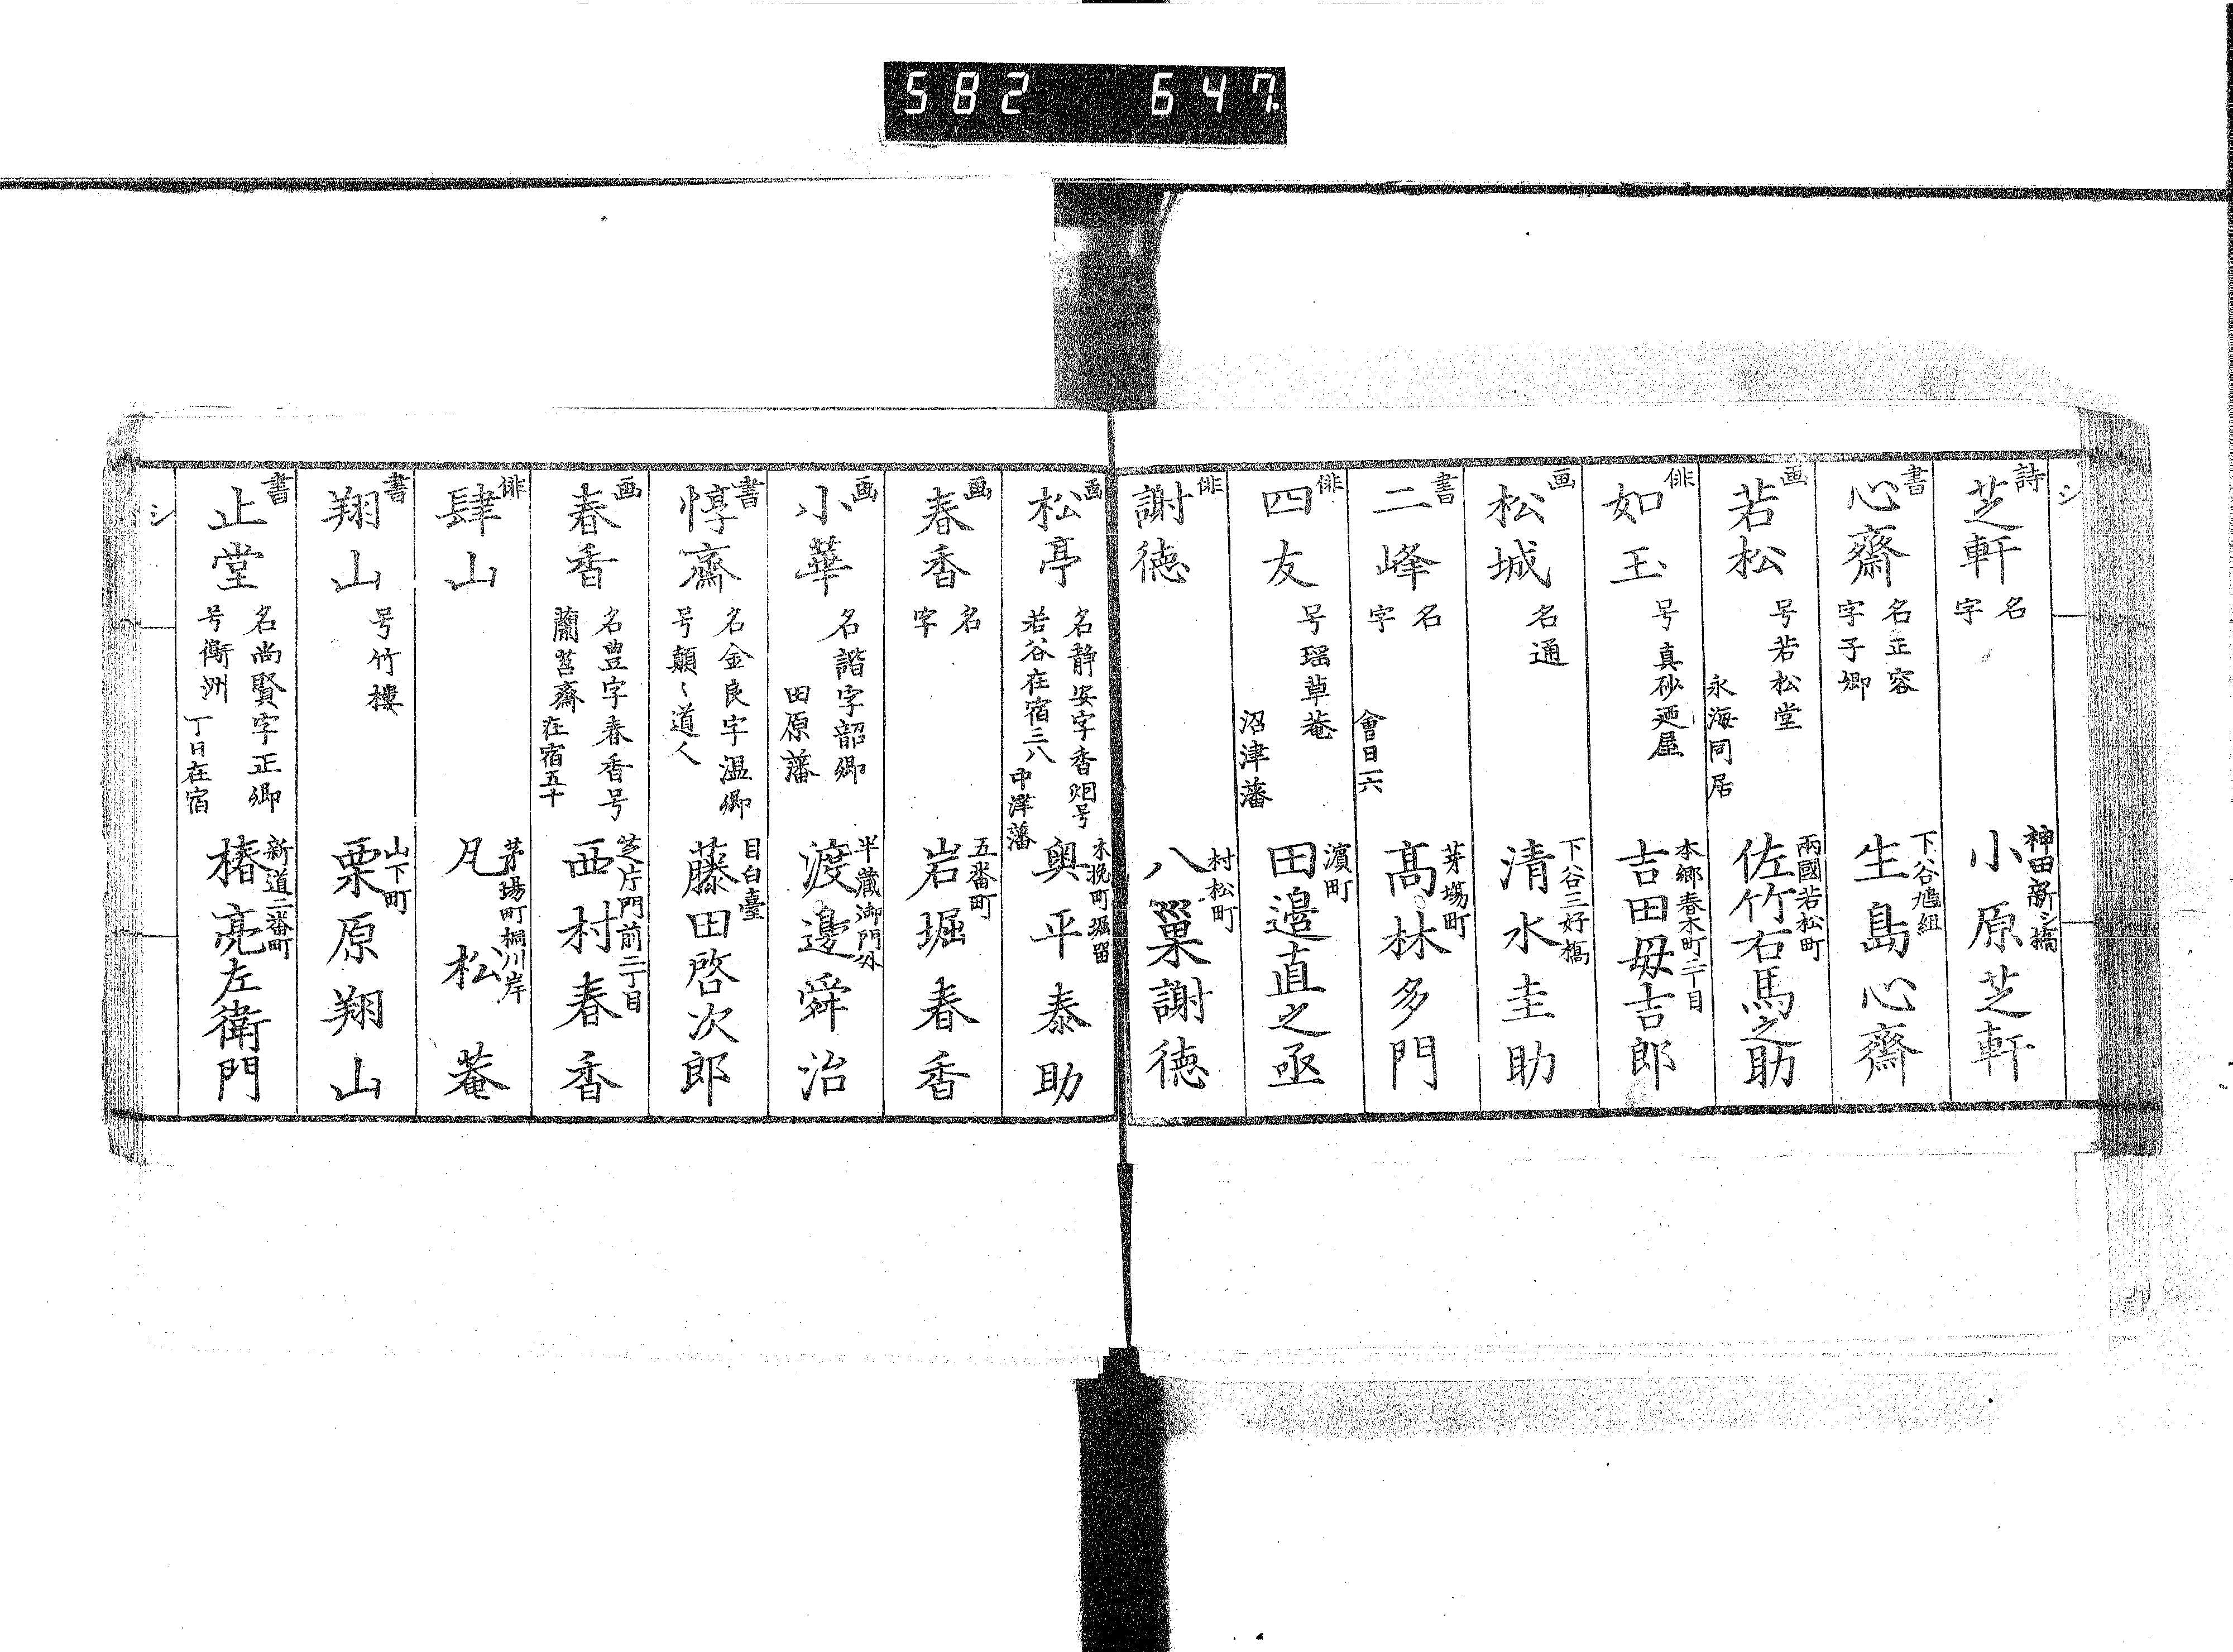 582 647
シ
詩
芝軒
名
字
神田新シ橋
小原芝軒
書
心齋
名正容
字子郷
下谷
生島心齋
画
若松
号若松堂
永海同居
兩國若松町
佐竹右馬之助
俳
如玉
号真砂廼屋
本郷春木町二丁目
吉田毋吉郎
画
松城
名通
下谷三好橋
清水圭助
書
二峰
名
字
會日一六
茅場町
髙林多門
俳
四友
号瑶草菴
沼津藩
濱町
田邉直之丞
俳
謝徳
村松町
八巢謝徳
画
松亭
名静安字香烟号
若谷在宿三八
中津藩
木挽町堀留
奥平泰助
画
春香
名
字
五番町
岩堀春香
画
小華
名諧字韶卿
田原藩
半藏御門外
渡邊舜治
書
惇齋
名金良字温卿
号顛〻道人
目白臺
藤田啓次郎
画
春香
名豊字春香号
蘭苕齋
在宿五十
芝片門前二丁目
西村春香
俳
肆山
茅場町桐川岸
凡松菴
書
翔山
号竹樓
山下町
栗原翔山
書
止堂
名尚賢字正卿
号衡洲
丁日在宿
新道二番町
椿亮左衛門
シ